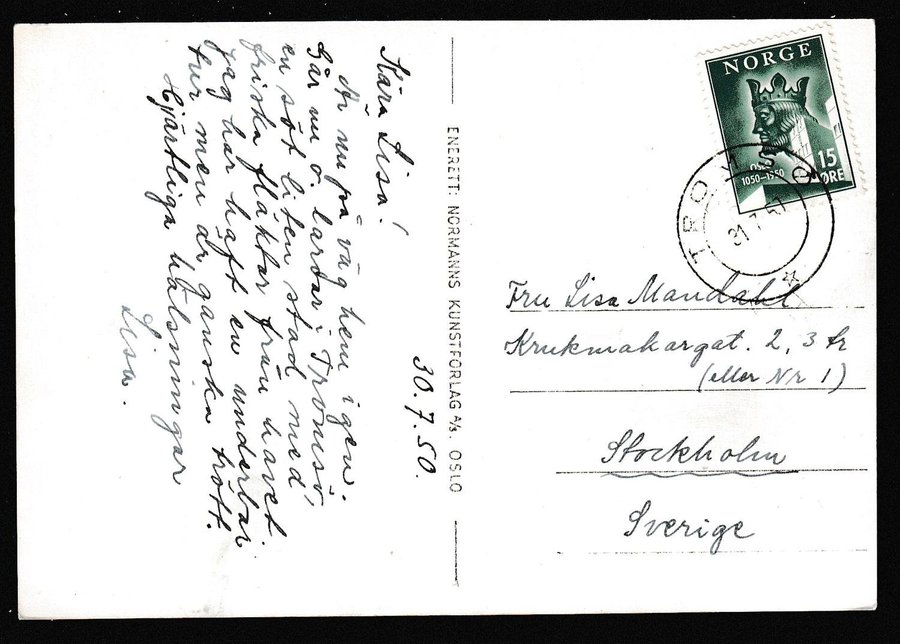 30.7.50.
Kära Lisa!
Är nu på väg hem igen.
Går nu o. lardar i Tromsö,
en söt liten stad med
friska fläktar från havet.
Jag har haft en underbar
tur men är ganska trött.
Hjärtliga hälsningar
Lisa.
ENERETT: NORMANNS KUNSTFORLAG A/S. OSLO
NORGE
OSLO
1050-1950
15
ØRE
TROMSØ
31 7 50
Fru Lisa Mandahl
Krukmakargat. 2, 3 tr
(eller Nr 1)
Stockholm
Sverige